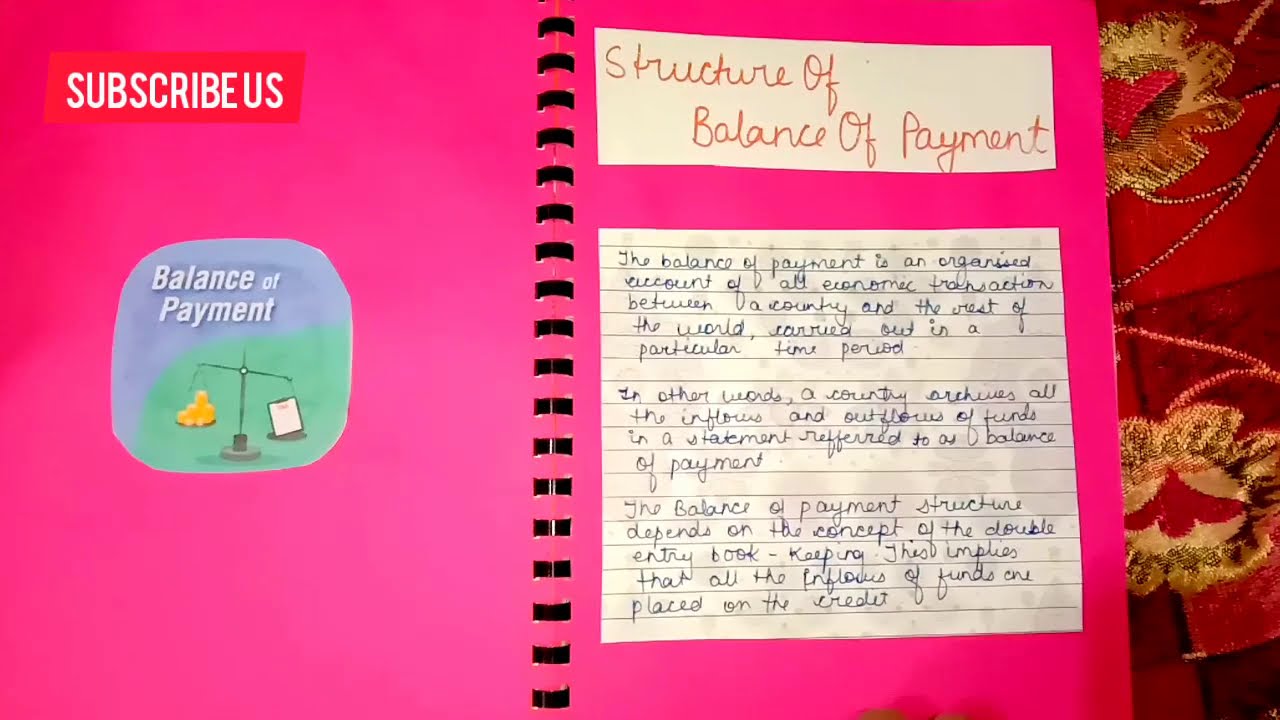 SUBSCRIBE US
Balance of
Payment
Structure Of
Balance Of Payment
The balance of payment is an organised
account of all economic transaction
between a country and the rest of
the world, carried out in a
particular time period.
In other words, a country archives all
the inflows and outflows of funds
in a statement refferred to as balance
of payment.
The Balance of payment structure
depends on the concept of the double
entry book - keeping. This implies
that all the inflows of funds are
placed on the credit